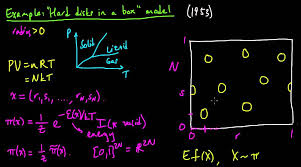 Example: "Hard disks in a box" model (1953)
radius > 0
P
Solid
Liquid
Gas
T
PV = nRT
= NkT
x = (r₁, s₁, ..., r_N, s_N)
π(x) = 1/Z e^{-E(x)/kT} I(x valid)
energy
π(x) = 1/Z π̃(x) [0,1]^{2N} ⊂ ℝ^{2N}
1
N
s
0
0 r 1
E f(x), X ~ π